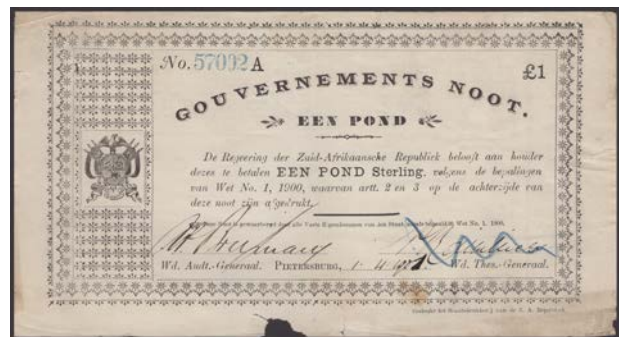 No. 57092 A
£1
GOUVERNEMENTS NOOT.
EEN POND
De Regeering der Zuid-Afrikaansche Republiek belooft aan houder
dezes te betalen EEN POND Sterling, volgens de bepalingen
van Wet No. 1, 1900, waarvan artt. 2 en 3 op de achterzijde van
deze noot zijn afgedrukt.
Wet No. 1. 1900.
Wd. Audt.-Generaal. PIETERSBURG, 1 4 1901. Wd. Thes.-Generaal.